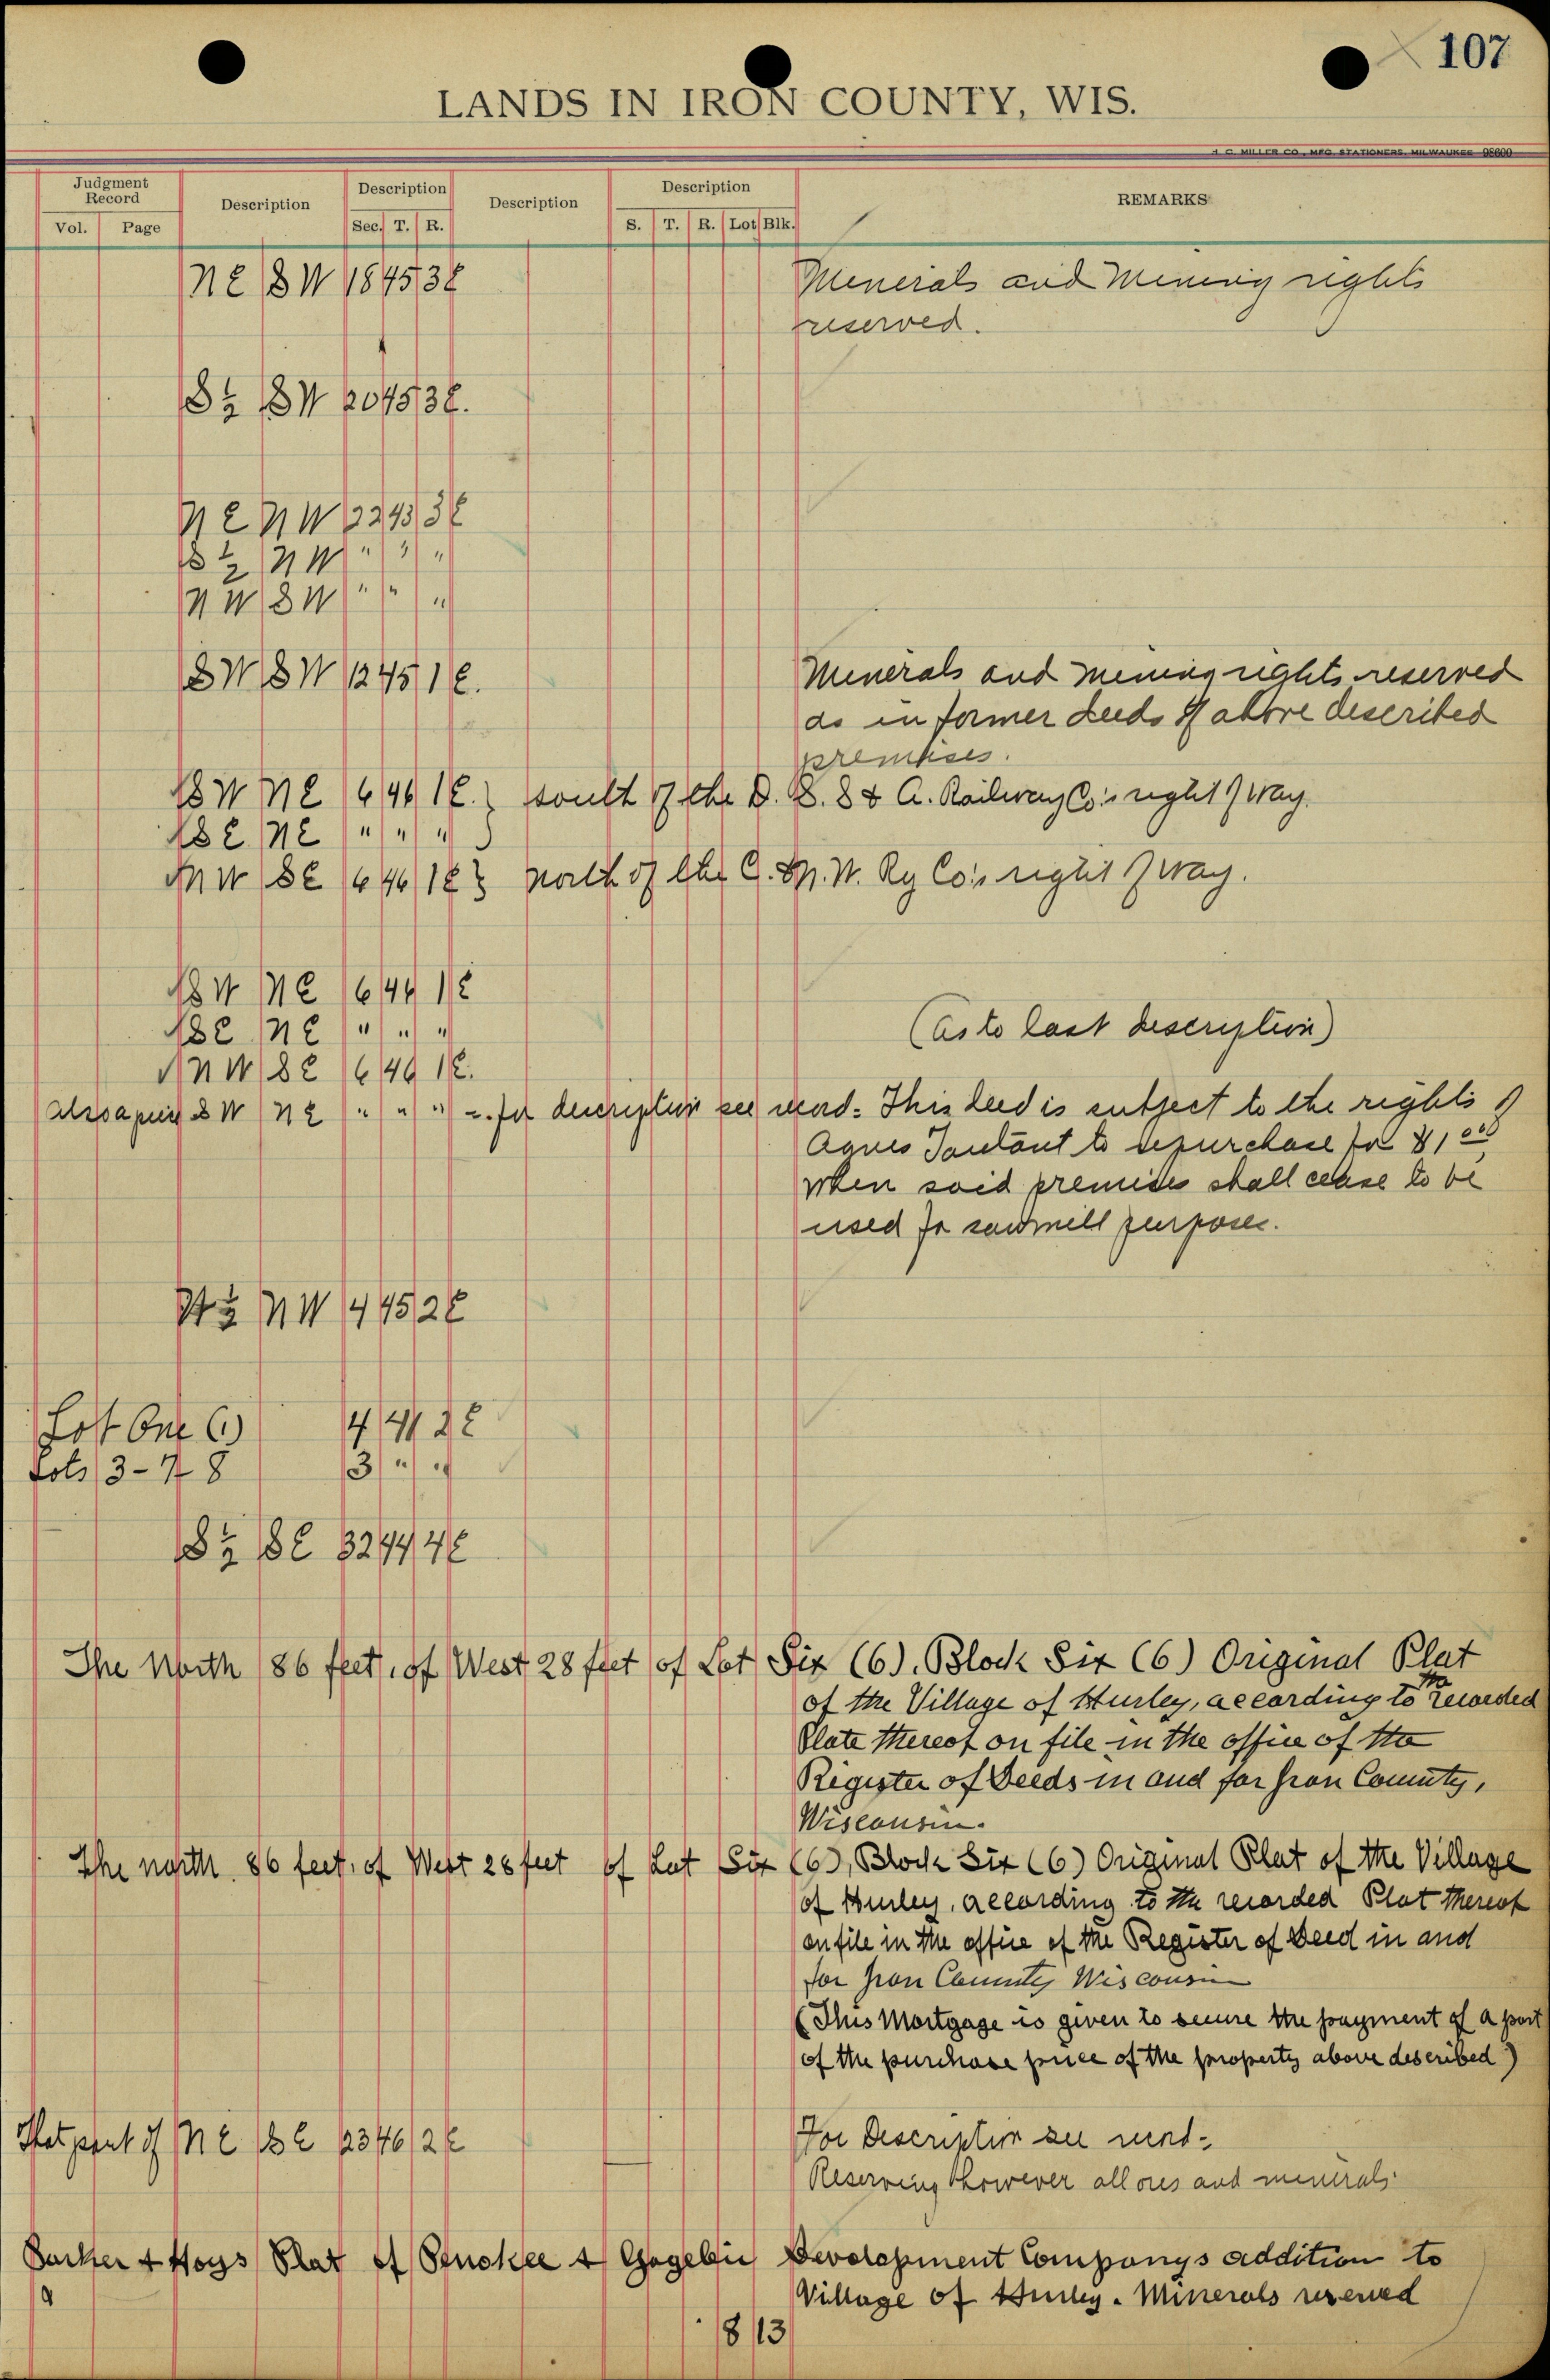 107
LANDS IN IRON COUNTY, WIS.
H. C. MILLER CO., MFG. STATIONERS, MILWAUKEE 98600
Judgment Record Description Description Description Description REMARKS
Vol. Page Sec. T. R. S. T. R. Lot Blk.
NE SW 18 45 3E Minerals and Mining rights
reserved.
S½ SW 20 45 3E.
NE NW 22 45 3E
S½ NW " " "
NW SW " " "
SW SW 12 45 1E. Minerals and mining rights reserved
as in former deeds of above described
premises.
SW NE 16 46 1E. } south of the D. S. S & A. Railway Co's right of way.
SE NE " " " }
NW SE 16 46 1E } north of the C. & N. W. Ry Co's right of way.
SW NE 16 46 1E
SE NE " " " (As to last description)
NW SE 16 46 1E.
Also a piece SW NE " " " - for description see record. This deed is subject to the rights of
Agnes to repurchase for $1.00
when said premises shall cease to be
used for sawmill purposes.
W½ NW 4 45 2E
Lot One (1) 4 41 2E
Lots 3-7 8 3 " "
S½ SE 32 44 4E
The North 86 feet, of West 28 feet of Lot Six (6), Block Six (6) Original Plat
of the Village of Hurley, according to the recorded
Plate thereof on file in the office of the
Register of Deeds in and for Iron County,
Wisconsin.
The north 86 feet, of West 28 feet of Lot Six (6), Block Six (6) Original Plat of the Village
of Hurley, according to the recorded Plat thereof
on file in the office of the Register of Deed in and
for Iron County Wisconsin
(This Mortgage is given to secure the payment of a part
of the purchase price of the property above described)
That part of NE SE 23 46 2E For Description see record-
Reserving however all ores and minerals
Burker & Hoys Plat of Penokee & Gogebic Development Companys addition to
Village of Hurley. Minerals reserved
8 13